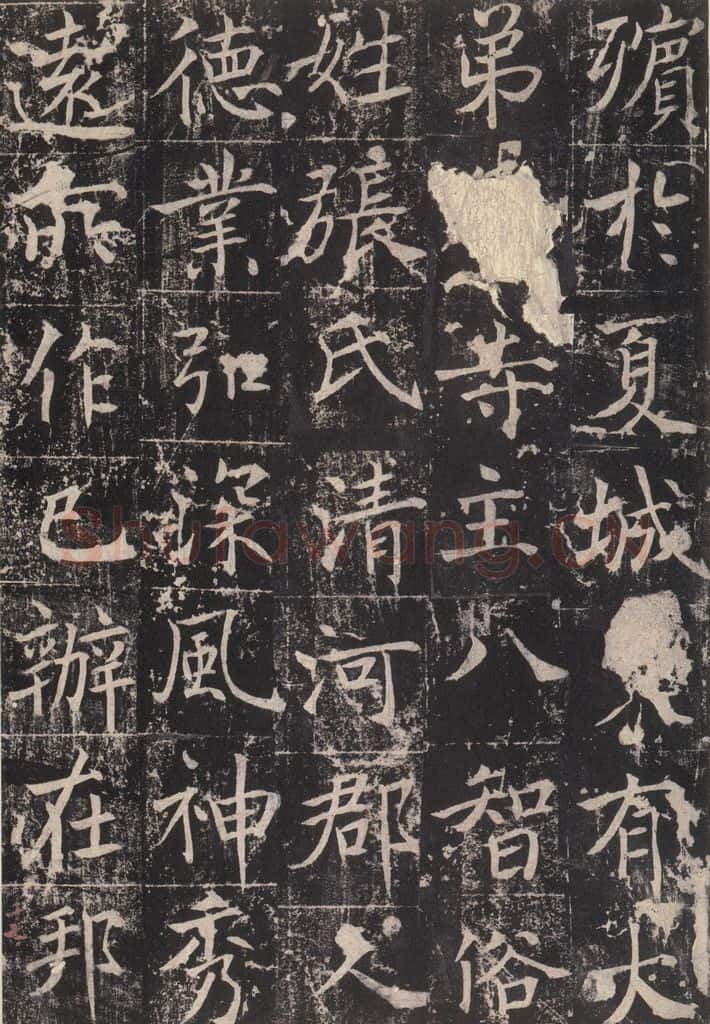 殯於夏城有大
弟寺主八智俗
姓張氏清河郡人
德業弘深風神秀
遠所作已辦在邦
Shufawang.CN